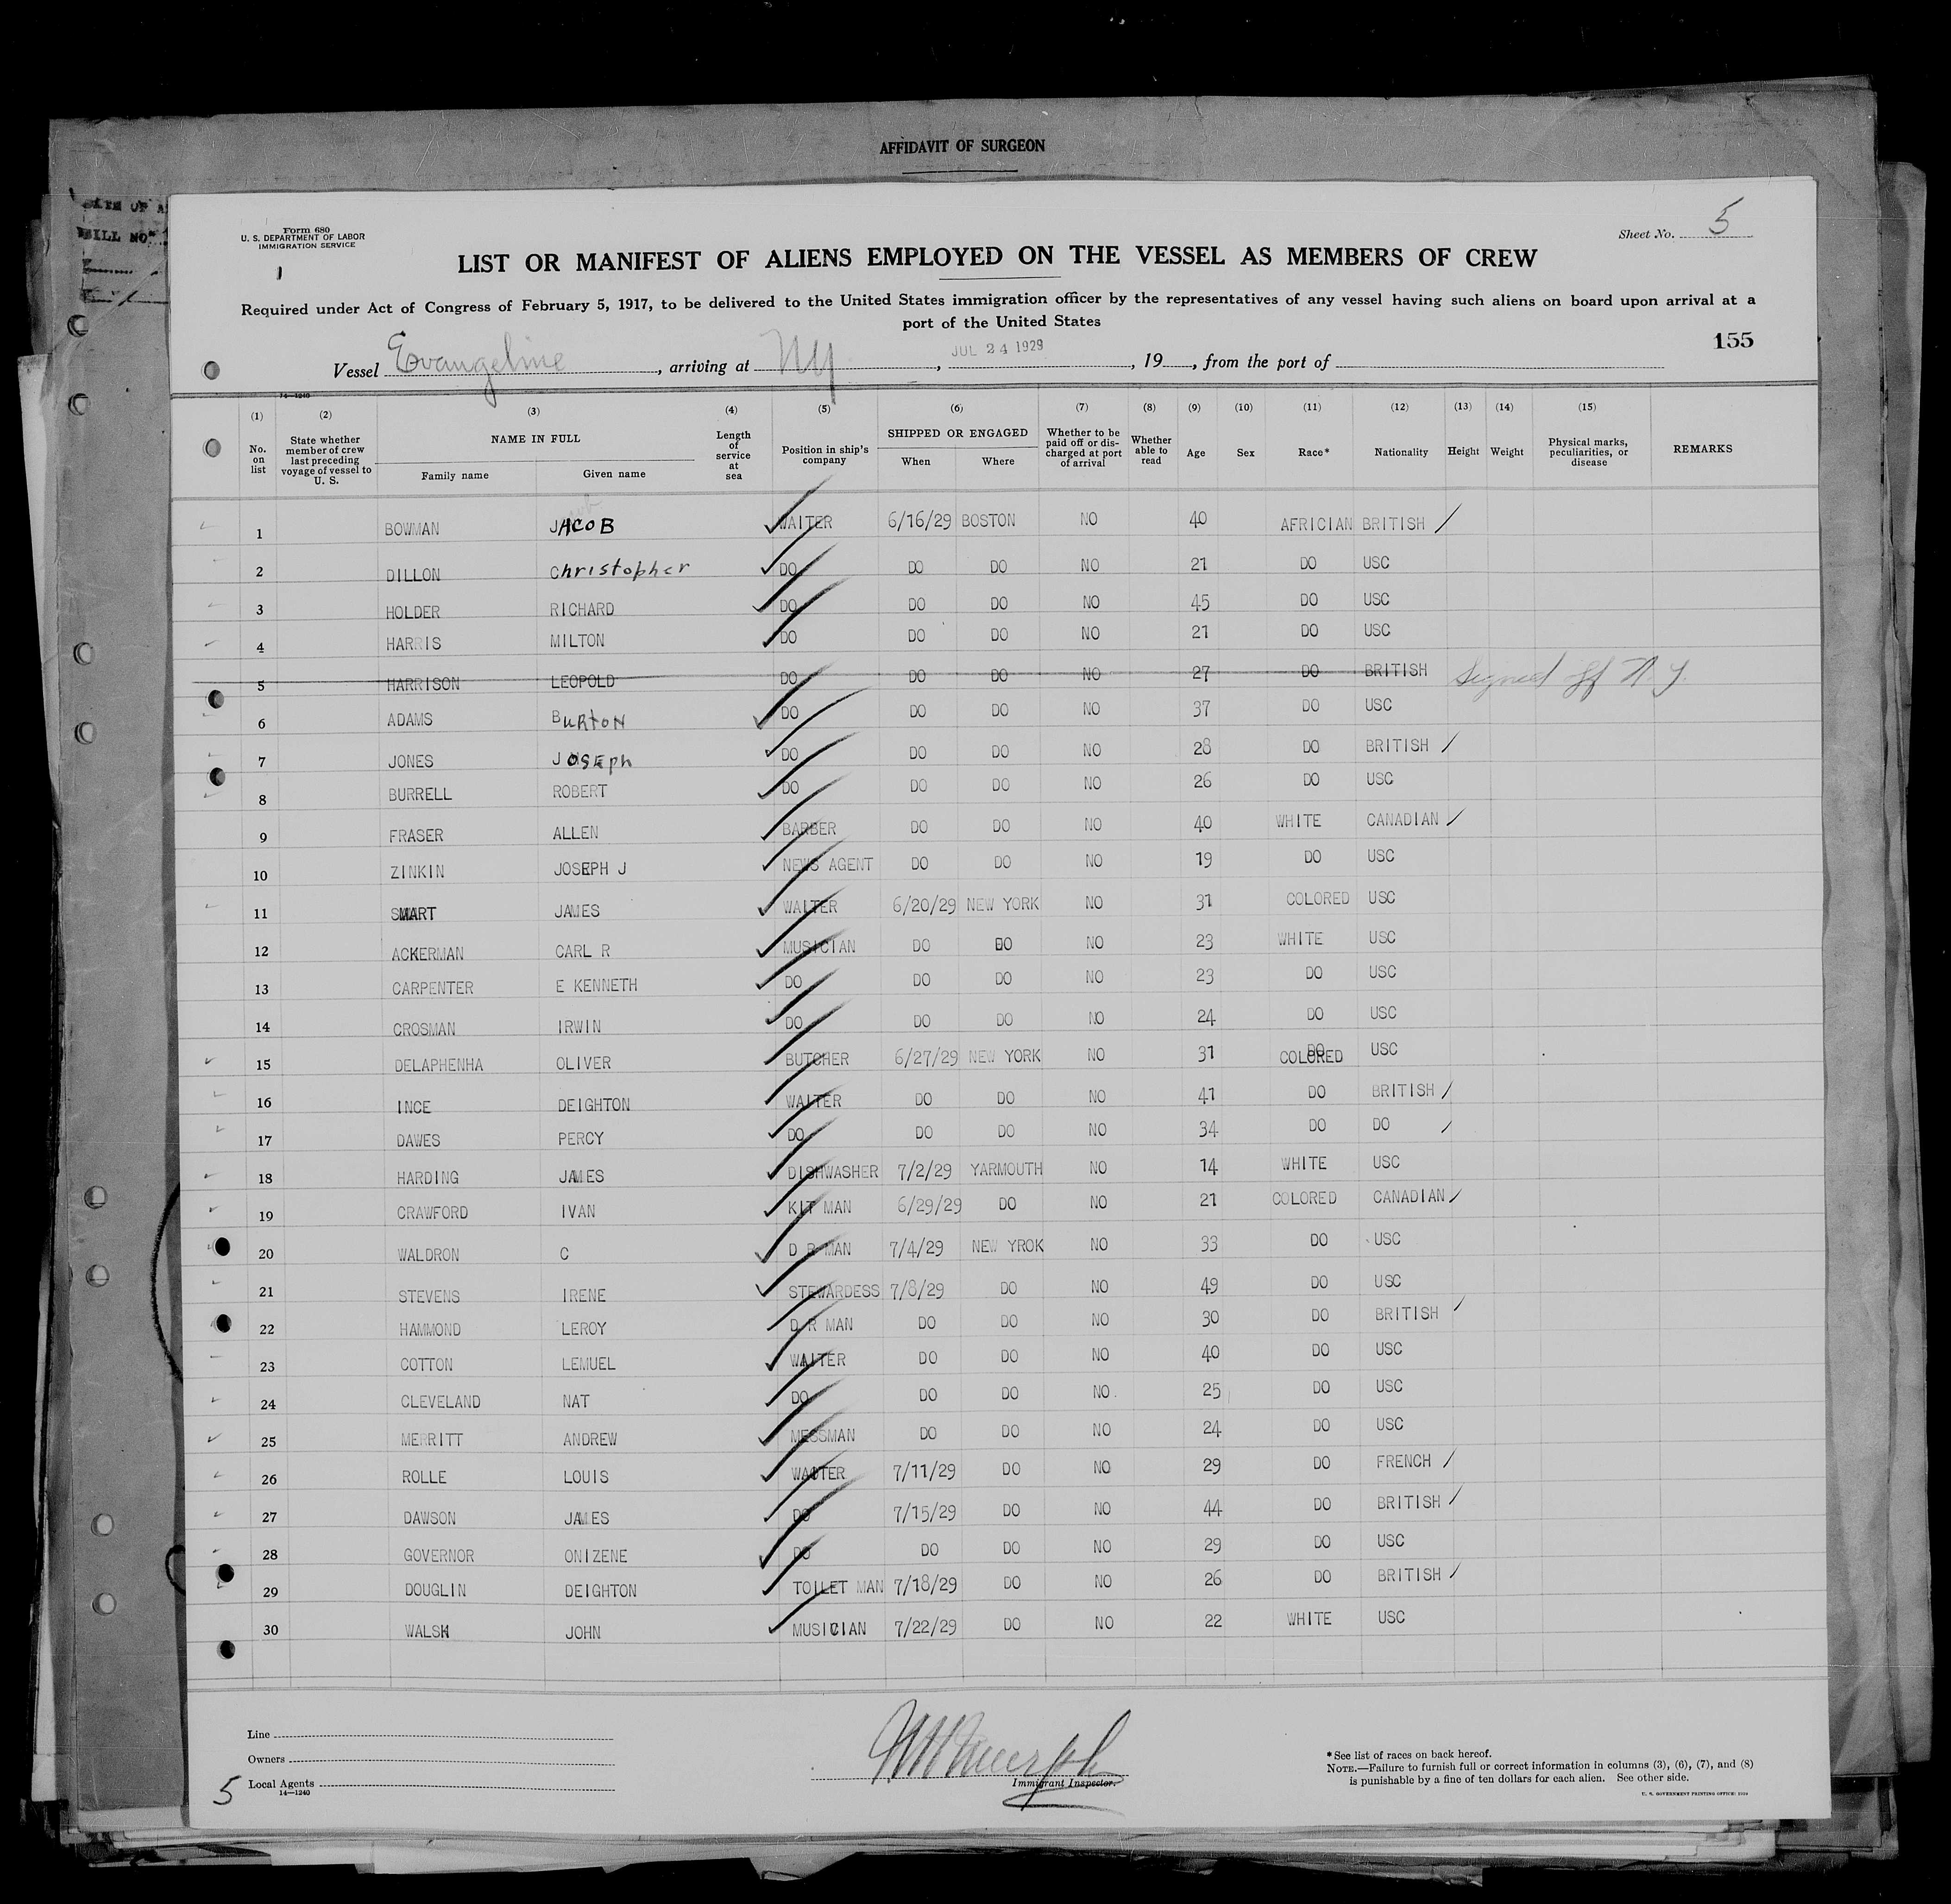 AFFIDAVIT OF SURGEON
BILL NO.
Form 680
U. S. DEPARTMENT OF LABOR
IMMIGRATION SERVICE
1
Sheet No. 5
LIST OR MANIFEST OF ALIENS EMPLOYED ON THE VESSEL AS MEMBERS OF CREW
Required under Act of Congress of February 5, 1917, to be delivered to the United States immigration officer by the representatives of any vessel having such aliens on board upon arrival at a
port of the United States
155
Vessel Evangeline, arriving at NY, JUL 24 1929, 19, from the port of
14—1240
(1) (2) (3) (4) (5) (6) (7) (8) (9) (10) (11) (12) (13) (14) (15)
No. on list
State whether member of crew last preceding voyage of vessel to U. S.
NAME IN FULL
Family name Given name
Length of service at sea
Position in ship's company
SHIPPED OR ENGAGED
When Where
Whether to be paid off or discharged at port of arrival
Whether able to read
Age Sex Race* Nationality Height Weight
Physical marks, peculiarities, or disease
REMARKS
1 BOWMAN JACOB WAITER 6/16/29 BOSTON NO 40 AFRICIAN BRITISH /
2 DILLON Christopher DO DO DO NO 21 DO USC
3 HOLDER RICHARD DO DO DO NO 45 DO USC
4 HARRIS MILTON DO DO DO NO 21 DO USC
5 HARRISON LEOPOLD DO DO DO NO 27 DO BRITISH Signed off N.Y.
6 ADAMS BURTON DO DO DO NO 37 DO USC
7 JONES JOSEph DO DO DO NO 28 DO BRITISH /
8 BURRELL ROBERT DO DO DO NO 26 DO USC
9 FRASER ALLEN BARBER DO DO NO 40 WHITE CANADIAN /
10 ZINKIN JOSEPH J NEWS AGENT DO DO NO 19 DO USC
11 SMART JAMES WAITER 6/20/29 NEW YORK NO 31 COLORED USC
12 ACKERMAN CARL R MUSICIAN DO DO NO 23 WHITE USC
13 CARPENTER E KENNETH DO DO DO NO 23 DO USC
14 CROSMAN IRWIN DO DO DO NO 24 DO USC
15 DELAPHENHA OLIVER BUTCHER 6/27/29 NEW YORK NO 31 COLORED USC
16 INCE DEIGHTON WAITER DO DO NO 41 DO BRITISH /
17 DAWES PERCY DO DO DO NO 34 DO DO /
18 HARDING JAMES DISHWASHER 7/2/29 YARMOUTH NO 14 WHITE USC
19 CRAWFORD IVAN KIT MAN 6/29/29 DO NO 21 COLORED CANADIAN /
20 WALDRON C D R MAN 7/4/29 NEW YROK NO 33 DO USC
21 STEVENS IRENE STEWARDESS 7/8/29 DO NO 49 DO USC
22 HAMMOND LEROY D R MAN DO DO NO 30 DO BRITISH /
23 COTTON LEMUEL WAITER DO DO NO 40 DO USC
24 CLEVELAND NAT DO DO DO NO. 25 DO USC
25 MERRITT ANDREW MESSMAN DO DO NO 24 DO USC
26 ROLLE LOUIS WAITER 7/11/29 DO NO 29 DO FRENCH /
27 DAWSON JAMES DO 7/15/29 DO NO 44 DO BRITISH /
28 GOVERNOR ONIZENE DO DO DO NO 29 DO USC
29 DOUGLIN DEIGHTON TOILET MAN 7/18/29 DO NO 26 DO BRITISH /
30 WALSH JOHN MUSICIAN 7/22/29 DO NO 22 WHITE USC
Line
Owners
Local Agents
14—1240
5
Immigrant Inspector.
*See list of races on back hereof.
NOTE.—Failure to furnish full or correct information in columns (3), (6), (7), and (8)
is punishable by a fine of ten dollars for each alien. See other side.
U. S. GOVERNMENT PRINTING OFFICE: